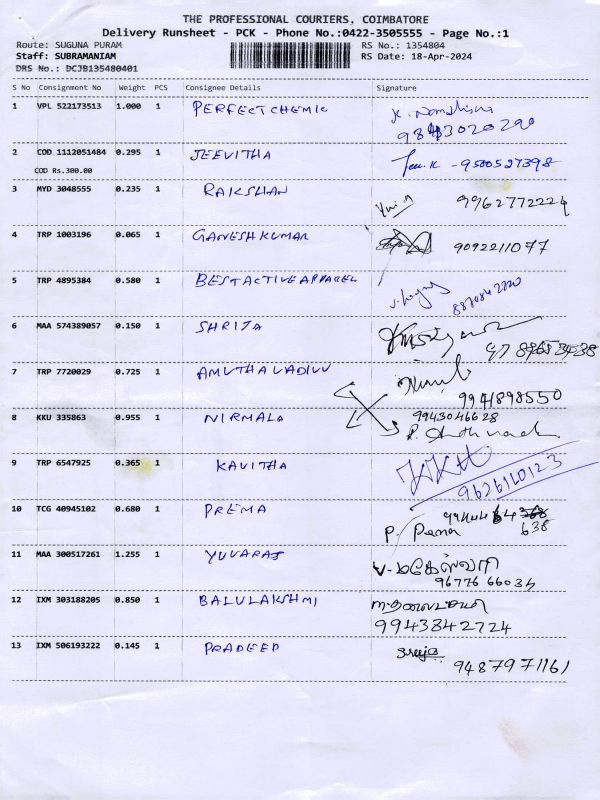 THE PROFESSIONAL COURIERS, COIMBATORE
Delivery Runsheet - PCK - Phone No.:0422-3505555 - Page No.:1
Route: SUGUNA PURAM RS No.: 1354804
Staff: SUBRAMANIAM RS Date: 18-Apr-2024
DRS No.: DCJB135480401
S No Consignment No Weight PCS Consignee Details Signature
1 VPL 522173513 1.000 1 PERFECTCHEMIC
2 COD 1112051484 0.295 1 JEEVITHA - 9500527398
COD Rs.300.00
3 MYD 3048555 0.235 1 RAKSHAN 9962772224
4 TRP 1003196 0.065 1 GANESH KUMAR 9092211077
5 TRP 4895384 0.580 1 BESTACTIVE APPAREL
6 MAA 574389057 0.150 1 SHRIJA
7 TRP 7720029 0.725 1 AMUTHAVADIVU 9941898550
8 KKU 335863 0.955 1 NIRMALA 9943046628
9 TRP 6547925 0.365 1 KAVITHA 9626110123
10 TCG 40945102 0.680 1 PREMA 638
11 MAA 300517261 1.255 1 YUVARAJ
96776 66034
12 IXM 303188205 0.850 1 BALULAKSHMI
9943842724
13 IXM 506193222 0.145 1 PRADEEP
9487971161